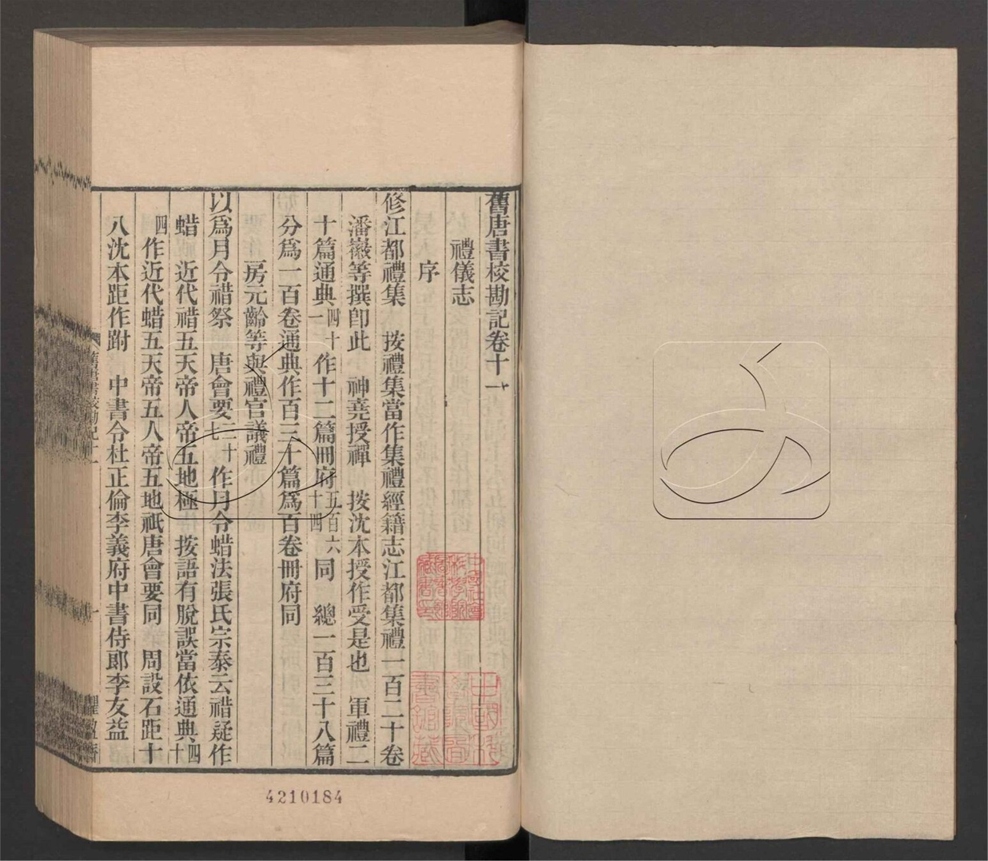 舊唐書校勘記卷十一
禮儀志
序
修江都禮集　按禮集當作集禮經籍志江都集禮一百二十卷
潘徽等撰卽此　神堯授禪　按沈本授作受是也　軍禮二
十篇通典四十一作十二篇冊府五百六十四同　總一百三十八篇
分爲一百卷通典作百三十篇爲百卷冊府同
房元齡等與禮官議禮
以爲月令禬祭　唐會要二十七作月令蜡法張氏宗泰云禬疑作
蜡　近代禬五天帝人帝五地極　按語有脫誤當依通典四十
四作近代蜡五天帝五人帝五地祇唐會要同　周設石距十
八沈本距作跗　中書令杜正倫李義府中書侍郎李友益
4210184